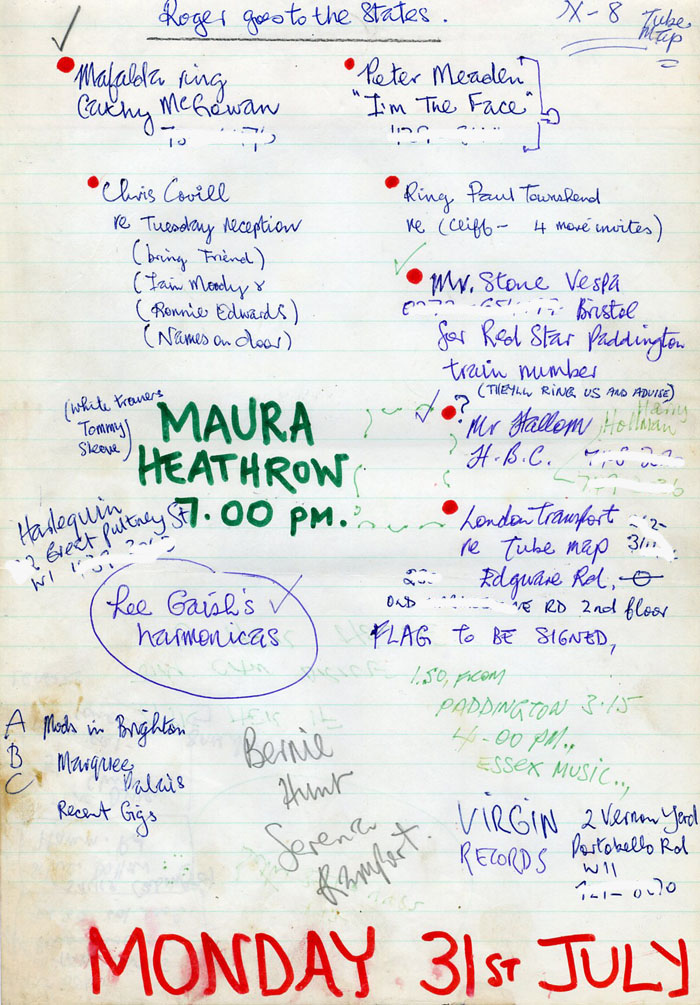 Roger goes to the States.
X-8
Tube
Map
Mafalda ring
Cathy McGowan
Peter Meaden
"I'm The Face"
Chris Covill
re Tuesday reception
(bring Friend)
(Iain Moody &
(Ronnie Edwards)
(Names on door)
Ring Paul Townshend
re (Cliff - 4 more invites)
Mr. Stone Vespa
Bristol
for Red Star Paddington
train number
(THEY'LL RING US AND ADVISE)
(White trousers
Tommy
Sleeve)
MAURA
HEATHROW
7.00 PM.
?
Mr Hallom
Harry
Hollman
H.B.C.
Harlequin
Great Pultney St
W1
London Transport
re Tube map
Edgware Rd.
RD 2nd floor
FLAG TO BE SIGNED,
Lee Gaish's
harmonicas
1.50, FROM
PADDINGTON 3.15
4.00 PM.,
ESSEX MUSIC..,
A Mods in Brighton
B Marquee
C Palais
Recent Gigs
Bernie
Hunt
Serena
VIRGIN
RECORDS
2 Vernon Yard
Portobello Rd
W11
MONDAY 31ST JULY